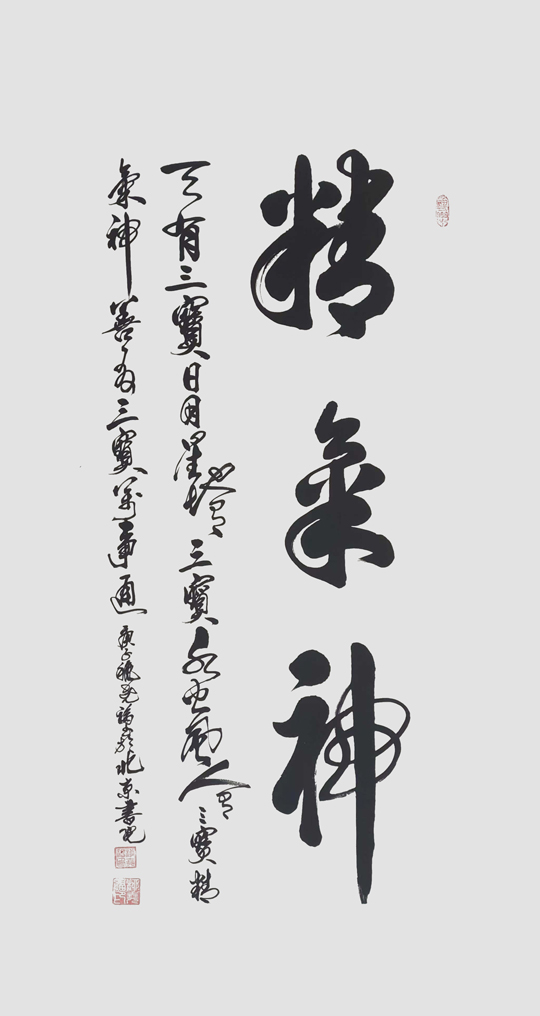 精氣神
天有三寶日月星地有三寶水火風人有三寶精
氣神善為三寶萬事通
庚子 於北京書